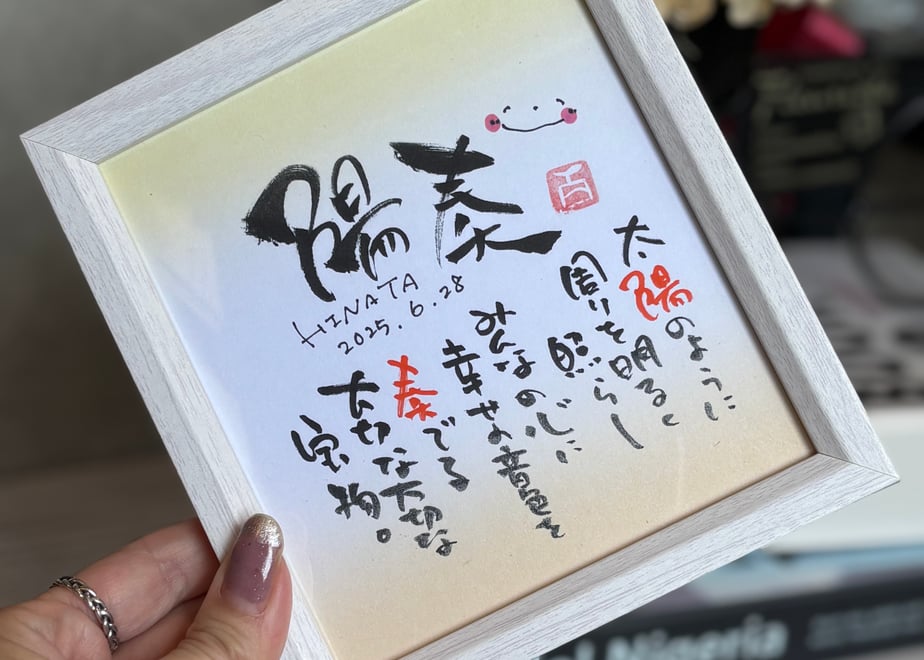 陽奏
HINATA
2025.6.28
太陽のように
周りを明るく
照らし
みんなの心に
幸せな音色を
奏でる
大切な大切な
宝物。
Nigeria